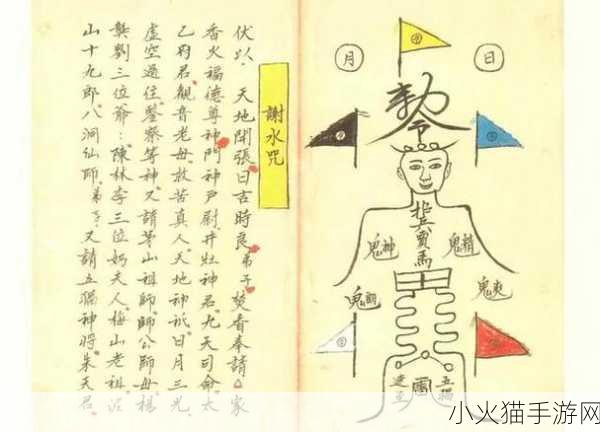 日
月
敕令
招兵買馬
五猖
謝水咒
伏以 天地開張日吉時良弟子焚香奉請 家
香火福德尊神門神戶尉井灶神君九天司命太
乙府君觀音老母救苦真人天地神祇日月三光
虛空過往鑒察等神又請茅山祖師師公師母楊
龔劉三位爺陳林李三位奶夫人梅山老祖
山十九郎八洞仙師弟子又請五猖神將朱天君
小火猫手游网